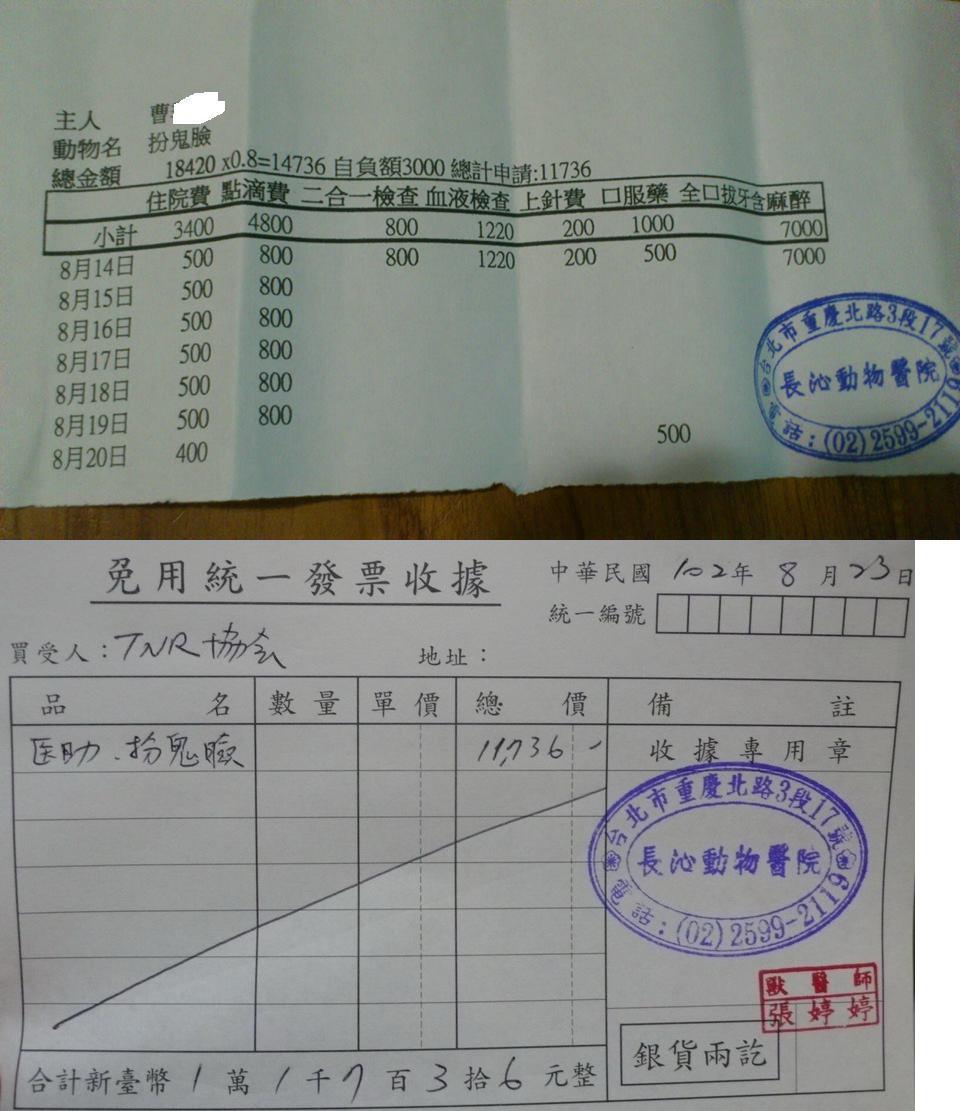 主人 曹
動物名 扮鬼臉
總金額 18420 x0.8=14736 自負額3000 總計申請:11736
住院費 點滴費 二合一檢查 血液檢查 上針費 口服藥 全口拔牙含麻醉
小計 3400 4800 800 1220 200 1000 7000
8月14日 500 800 800 1220 200 500 7000
8月15日 500 800
8月16日 500 800
8月17日 500 800
8月18日 500 800
8月19日 500 800
8月20日 400 500
台北市重慶北路3段17號
長沁動物醫院
電話:(02)2599-2119
免用統一發票收據
中華民國 102年 8 月 23日
統一編號
買受人:TNR協会 地址:
品名 數量 單價 總價 備註
医助、扮鬼臉 11,736 收據專用章
台北市重慶北路3段17號
長沁動物醫院
電話:(02)2599-2119
獸醫師
張婷婷
銀貨兩訖
合計新臺幣 1 萬 1 千 7 百 3 拾 6 元整